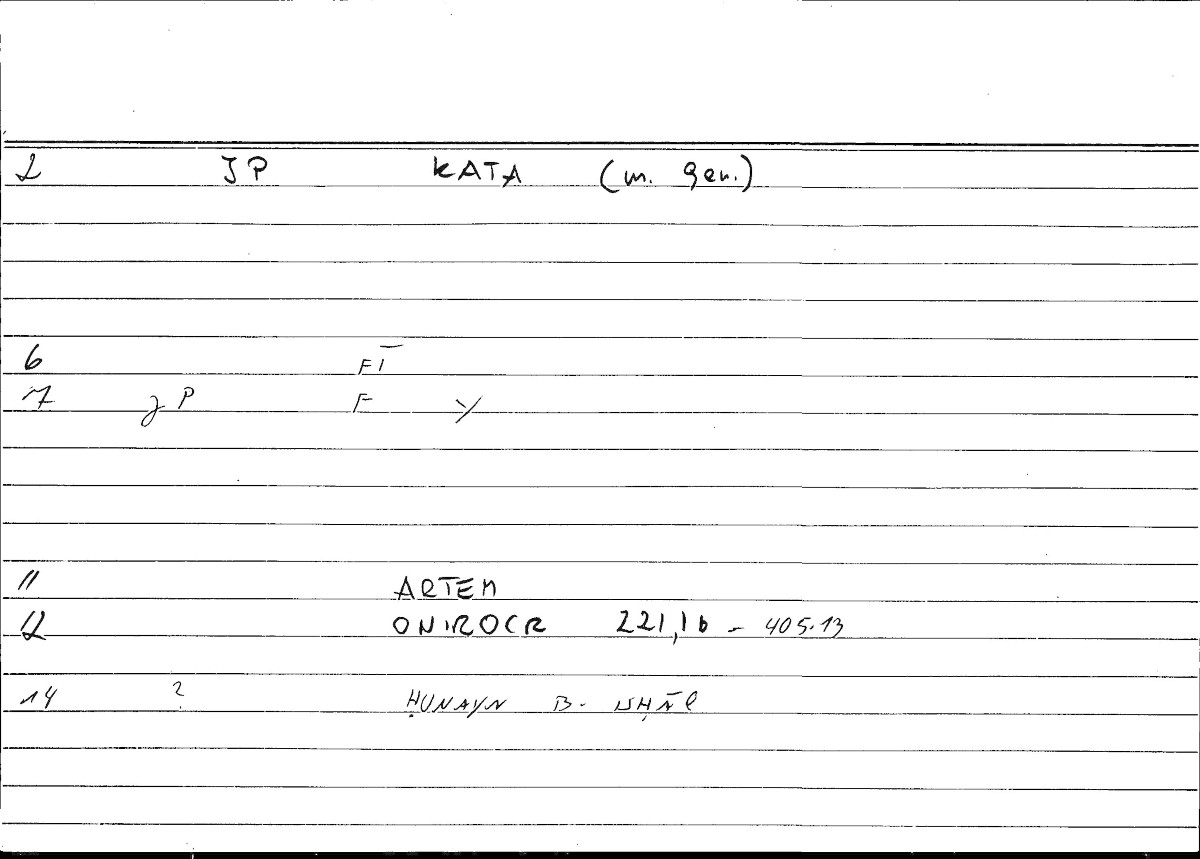 2 JP KATA (m. gen.)
6 FĪ
7 JP F Y
11 ARTEM
12 ONIROCR 221,16 - 405.13
14 ? ḤUNAYN B. ISḤĀQ